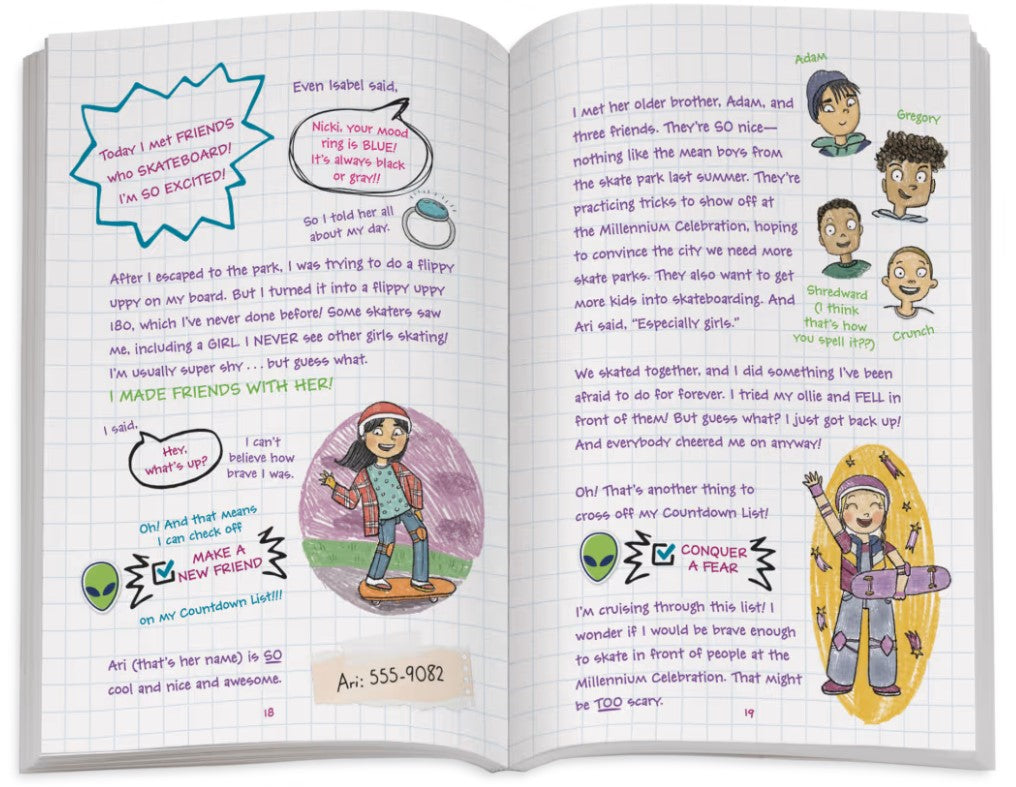 Today I met FRIENDS
who SKATEBOARD!
I'm SO EXCITED!
Even Isabel said,
Nicki, your mood
ring is BLUE!
It's always black
or gray!!
So I told her all
about my day.
After I escaped to the park, I was trying to do a flippy
uppy on my board. But I turned it into a flippy uppy
180, which I've never done before! Some skaters saw
me, including a GIRL. I NEVER see other girls skating!
I'm usually super shy . . . but guess what.
I MADE FRIENDS WITH HER!
I said,
Hey,
what's up?
I can't
believe how
brave I was.
Oh! And that means
I can check off
MAKE A
NEW FRIEND
on my Countdown List!!!
Ari (that's her name) is SO
cool and nice and awesome.
Ari: 555-9082
18
I met her older brother, Adam, and
three friends. They're SO nice—
nothing like the mean boys from
the skate park last summer. They're
practicing tricks to show off at
the Millennium Celebration, hoping
to convince the city we need more
skate parks. They also want to get
more kids into skateboarding. And
Ari said, "Especially girls."
Adam
Gregory
Shredward
(I think
that's how
you spell it??)
Crunch
We skated together, and I did something I've been
afraid to do for forever. I tried my ollie and FELL in
front of them! But guess what? I just got back up!
And everybody cheered me on anyway!
Oh! That's another thing to
cross off my Countdown List!
CONQUER
A FEAR
I'm cruising through this list! I
wonder if I would be brave enough
to skate in front of people at the
Millennium Celebration. That might
be TOO scary.
19